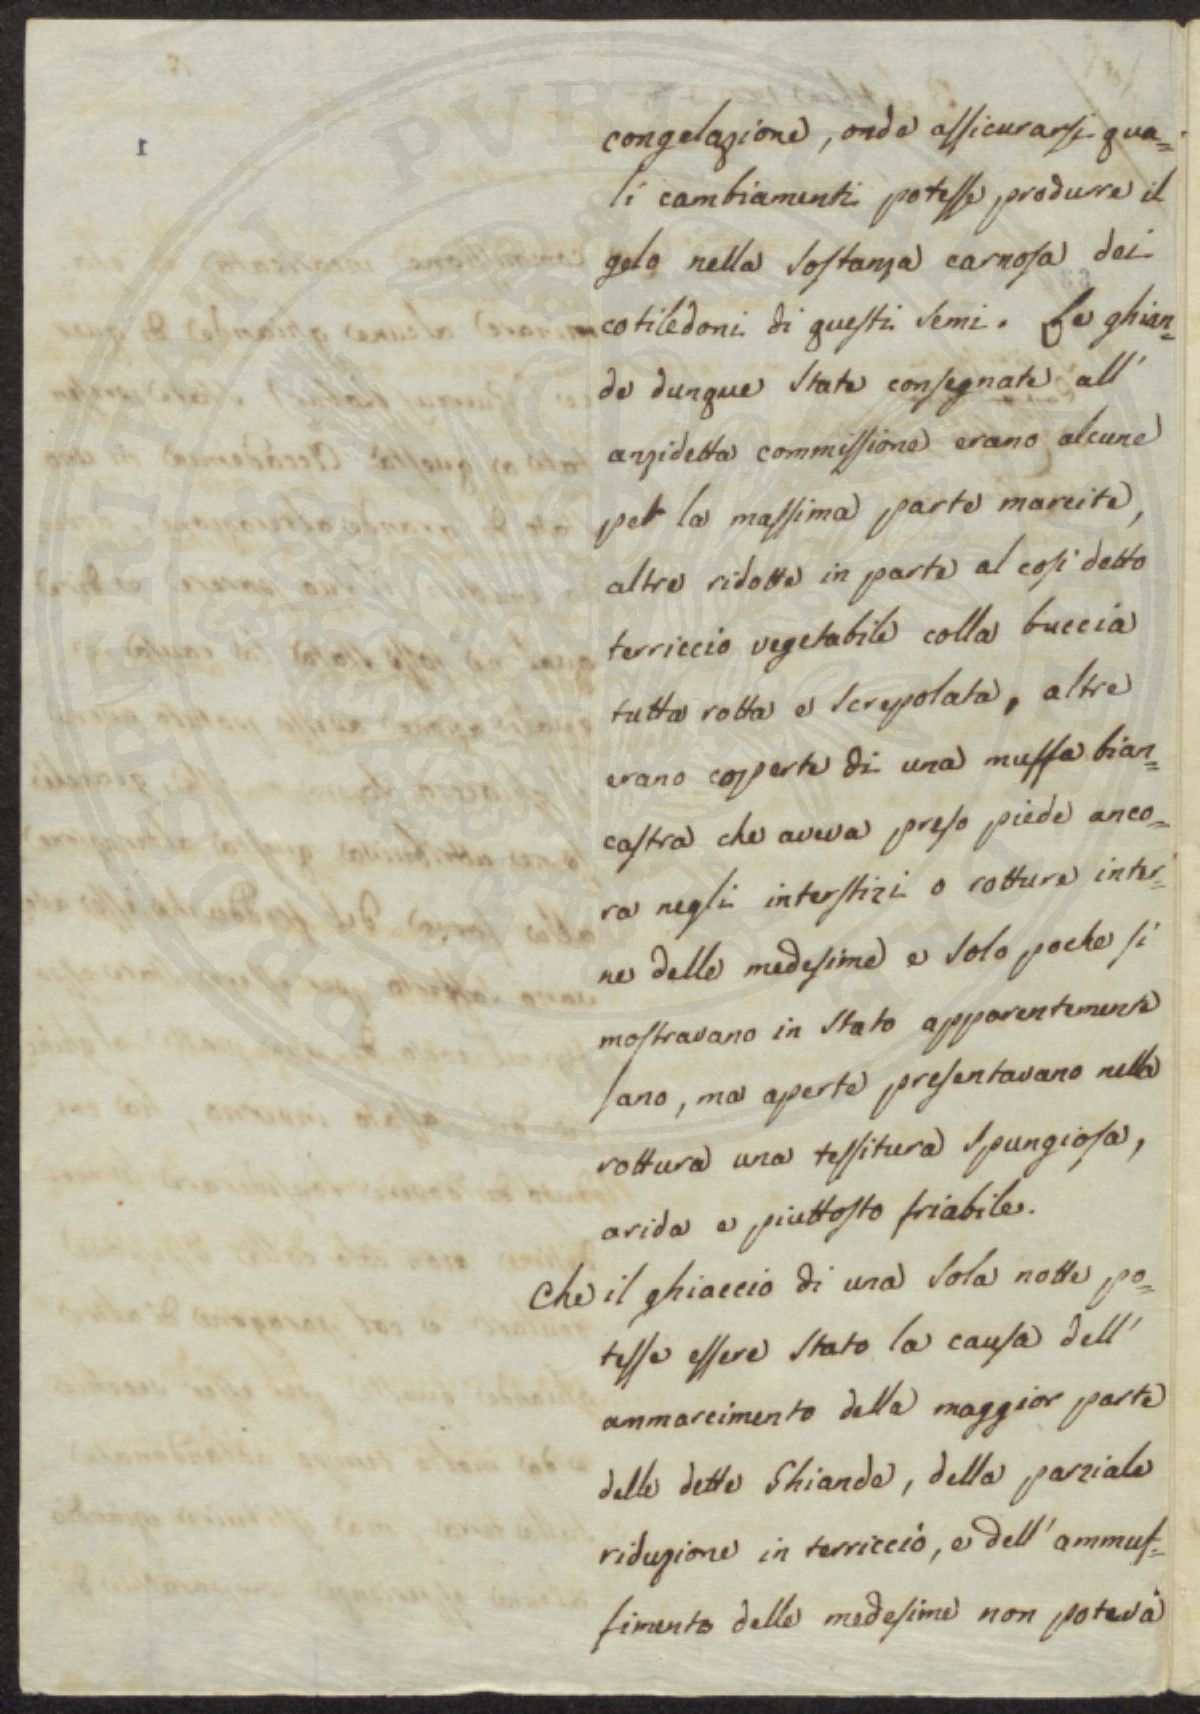 congelazione, onde assicurarsi qua=
li cambiamenti potesse produrre il
gelo nella sostanza carnosa dei
cotiledoni di questi semi. Le ghian=
de dunque state consegnate all'
anzidetta commissione erano alcune
per la massima parte marcite,
altre ridotte in parte al così detto
terriccio vegetabile colla buccia
tutta rotta e screpolata, altre
erano coperte di una muffa bian=
castra che aveva preso piede anco=
ra negli interstizi o rotture inter=
ne delle medesime e solo poche si
mostravano in stato apparentemente
sano, ma aperte presentavano nella
rottura una tessitura spungiosa,
arida e piuttosto friabile.
Che il ghiaccio di una sola notte po=
tesse essere stato la causa dell'
ammarcimento della maggior parte
delle dette Ghiande, della parziale
riduzione in terriccio, e dell'ammuf=
fimento delle medesime non poteva